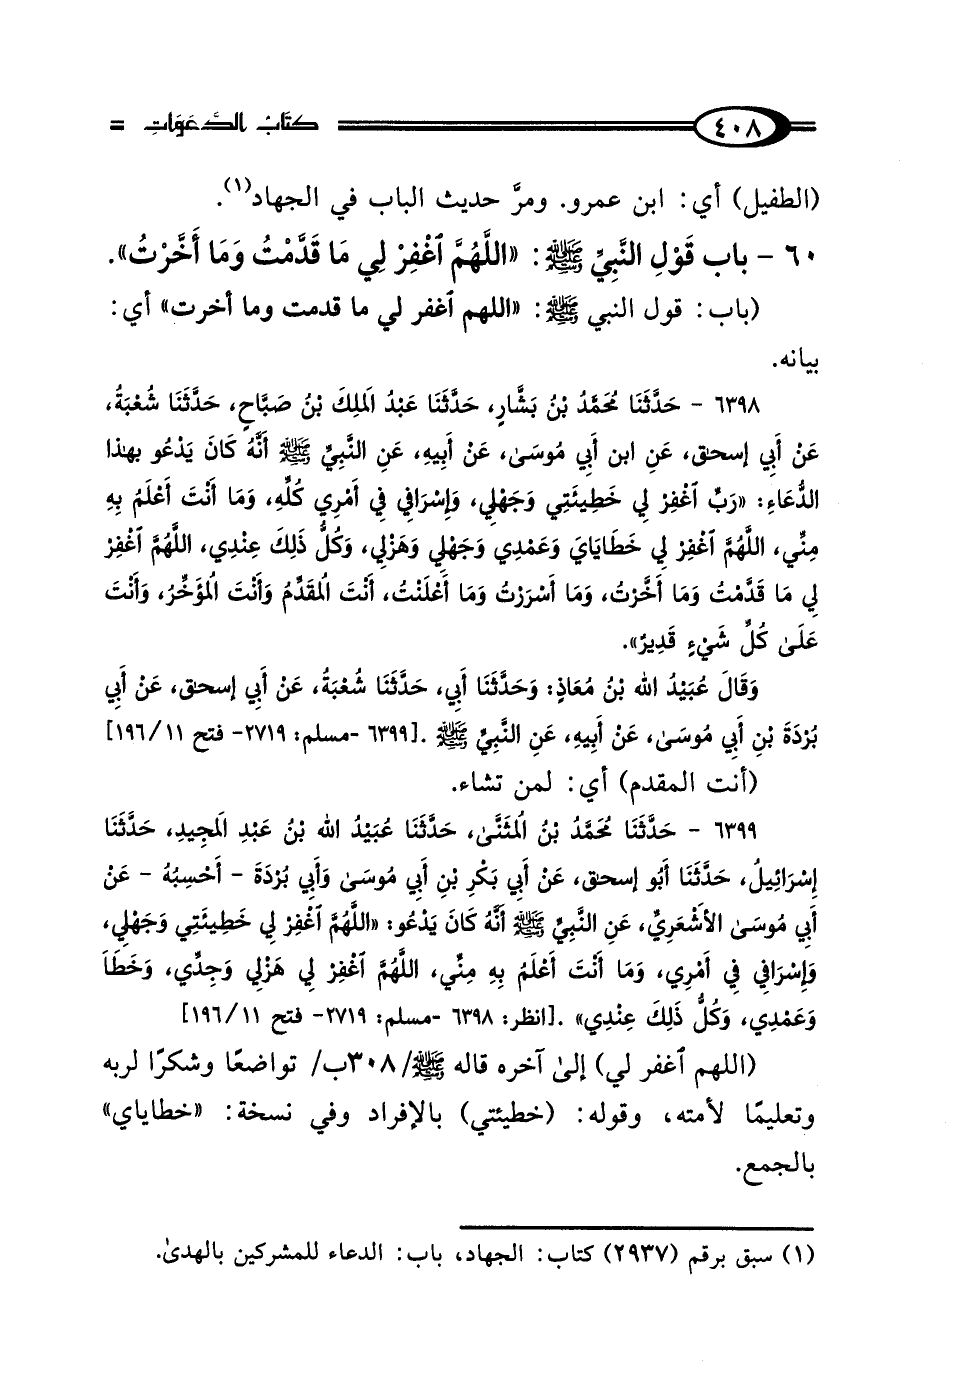 ٤٠٨ كتاب الدعوات =
(الطفيل) أي: ابن عمرو. ومرَّ حديث الباب في الجهاد(١).
٦٠ - باب قَوْلِ النَّبِيِّ ﷺ: «اللَّهُمَّ ٱغْفِرْ لِي مَا قَدَّمْتُ وَمَا أَخَّرْتُ».
(باب: قول النبي ﷺ: «اللهم ٱغفر لي ما قدمت وما أخرت» أي:
بيانه.
٦٣٩٨ - حَدَّثَنَا مُحَمَّدُ بْنُ بَشَّارٍ، حَدَّثَنَا عَبْدُ الَملِكَ بْنُ صَبَّاحٍ، حَدَّثَنَا شُعْبَةُ،
عَنْ أَبِي إسحٰق، عَنِ ابن أَبِي مُوسَىٰ، عَنْ أَبِيهِ، عَنِ النَّبِيِّ ﷺ أَنَّهُ كَانَ يَدْعُو بهٰذا
الدُّعَاءِ: «رَبِّ ٱغْفِرْ لِي خَطِيئَتِي وَجَهْلِي، وَإِسْرَافِي فِي أَمْرِي كُلِّهِ، وَمَا أَنْتَ أَعْلَمُ بِهِ
مِنِّي، اللَّهُمَّ ٱغْفِرْ لِي خَطَايَايَ وَعَمْدِي وَجَهْلِي وَهَزْلِي، وَكُلُّ ذَلِكَ عِنْدِي، اللَّهُمَّ ٱغْفِرْ
لِي مَا قَدَّمْتُ وَمَا أَخَّرْتُ، وَمَا أَسْرَرْتُ وَمَا أَعْلَنْتُ، أَنْتَ الُمقَدِّمُ وَأَنْتَ الُمؤَخِّرُ، وَأَنْتَ
عَلَىٰ كُلِّ شَيْءٍ قَدِيرٌ».
وَقَالَ عُبَيْدُ الله بْنُ مُعَاذٍ: وَحَدَّثَنَا أَبِي، حَدَّثَنَا شُعْبَةُ، عَنْ أَبِي إسحٰق، عَنْ أَبِي
بُرْدَةَ بْنِ أَبِي مُوسَىٰ، عَنْ أَبِيهِ، عَنِ النَّبِيِّ ﷺ .[٦٣٩٩ -مسلم: ٢٧١٩- فتح ١١/ ١٩٦]
(أنت المقدم) أي: لمن تشاء.
٦٣٩٩ - حَدَّثَنَا مُحَمَّدُ بْنُ الُمثَنَّىٰ، حَدَّثَنَا عُبَيْدُ الله بْنُ عَبْدِ الَمجِيدِ، حَدَّثَنَا
إِسْرَائِيلُ، حَدَّثَنَا أَبُو إسحٰق، عَنْ أَبِي بَكْرِ بْنِ أَبِي مُوسَىٰ وَأَبِي بُرْدَةَ - أَحْسِبُهُ - عَنْ
أَبِي مُوسَىٰ الأَشْعَرِيِّ، عَنِ النَّبِيِّ ﷺ أَنَّهُ كَانَ يَدْعُو: «اللَّهُمَّ ٱغْفِرْ لِي خَطِيئَتِي وَجَهْلِي،
وَإِسْرَافِي فِي أَمْرِي، وَمَا أَنْتَ أَعْلَمُ بِهِ مِنِّي، اللَّهُمَّ ٱغْفِرْ لِي هَزْلِي وَجِدِّي، وَخَطَاَ
وَعَمْدِي، وَكُلُّ ذَلِكَ عِنْدِي» .[انظر: ٦٣٩٨ -مسلم: ٢٧١٩- فتح ١١/ ١٩٦]
(اللهم ٱغفر لي) إلىٰ آخره قاله ﷺ/ ٣٠٨ب/ تواضعًا وشكرًا لربه
وتعليمًا لأمته، وقوله: (خطيئتي) بالإفراد وفي نسخة: «خطاياي»
بالجمع.
(١) سبق برقم (٢٩٣٧) كتاب: الجهاد، باب: الدعاء للمشركين بالهدىٰ.